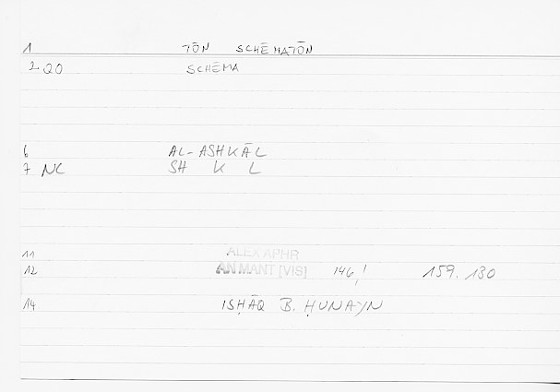 1 TŌN SCHĒMATŌN
2 QO SCHĒMA
6 AL-ASHKĀL
7 NC SH K L
11 ALEX APHR
12 AN MANT [VIS] 146,1 159.130
14 ISḤĀQ B. ḤUNAYN